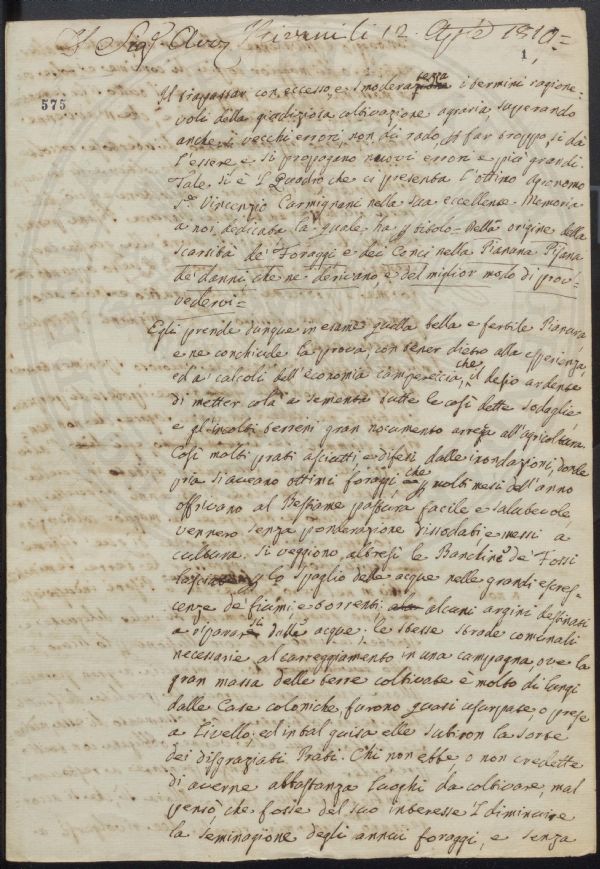 Il Sig.r Avv. Li 12 1810=
1
575
Il trapassar con eccesso, e senza i termini ragione-
voli della giudiziosa coltivazione agraria, superando
anche i vecchi errori, non di rado, p far troppo, si dà
l'essere e si propagano nuovi errori e più grandi.
Tale si è l Quadro che ci presenta l'ottimo Agronomo
S.r Vincenzio Carmignani nella sua eccellente Memoria
a noi dedicata la quale ha p titolo = Della origine della
scarsità de' Foraggi e dei Conci nella Pianura Pisana
de' danni che ne derivano e del miglior modo di prov-
vedervi =
Egli prende dunque in esame quella bella e fertile Pianura
e ne conchiude la prova, con tener dietro alla esperienza,
ed a' calcoli dell'economia campereccia, che l desio ardente
di metter colà a sementa tutte le così dette sodaglie
e gl'incolti terreni gran nocumento arreca all'agricoltura.
Così molti prati asciutti e difesi dalle inondazioni, donde
pria si aveano ottimi foraggi, che p molti mesi dell'anno
offrivano al Bestiame pastura facile e salubevole,
vennero senza ponderazione dissodati e messi a
cultura. Si veggiono altresì le Banchine de' Fossi
p lo spaglio delle acque nelle grandi escres-
cenze de' fiumi, e torrenti, alcuni argini destinati
a riparare dalle acque; le stesse strade comunali
necessarie al carreggiamento in una campagna, ove la
gran massa delle terre coltivate è molto di lungi
dalle Case coloniche furono quasi usurpate, o prese
a Livello, ed in tal guisa elle subiron la sorte
dei disgraziati Prati. Chi non ebbe, o non credette
di averne abbastanza luoghi da coltivare, mal
pensò, che fosse del suo interesse l diminuire
la seminagione degli annui foraggi, e senza